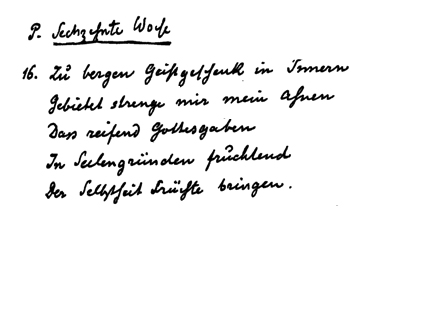 P. Sechzehnte Woche
16. Zu bergen Geistgeschenk in Innern
Gebietet strenge mir mein Ahnen
Dass reifend Gottesgaben
In Seelengründen fruchtend
Der Selbstheit Früchte bringen.